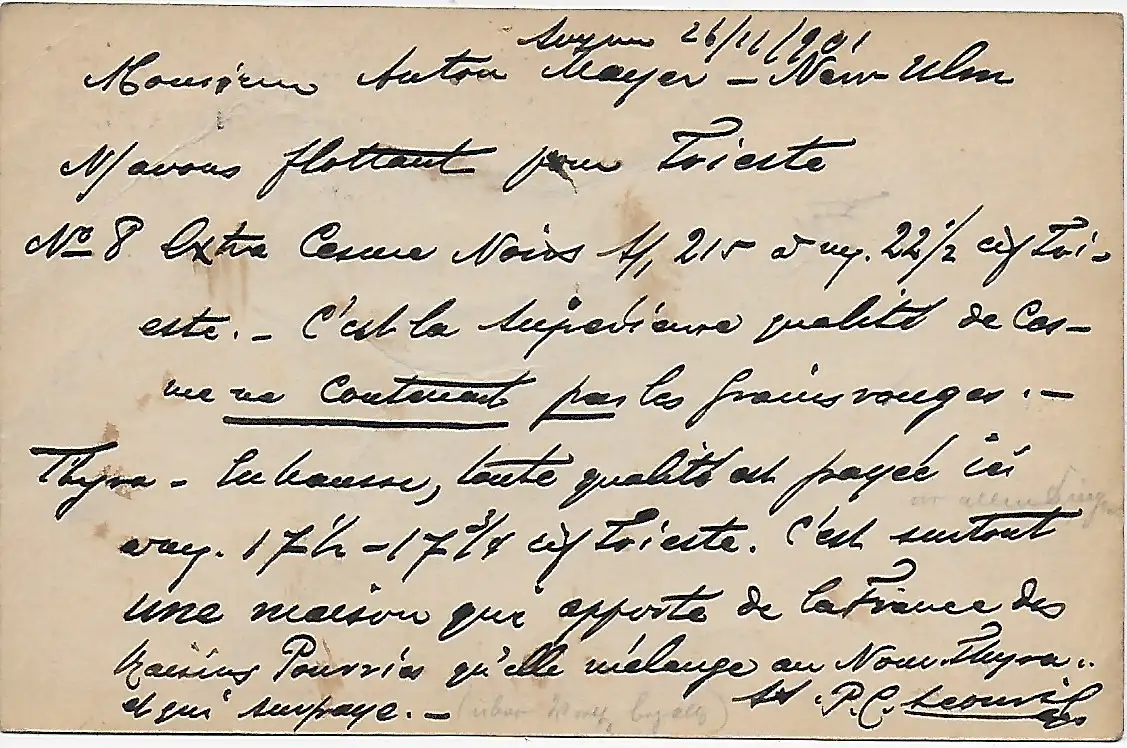 26/11/901
Monsieur Anton Mayer – Neu-Ulm
N/avons flottant pour Trieste
No 8 Extra Cesme Noirs 215 22 1/2 cif Tri-
este. – C'est la supérieure qualité de Ces-
me ne contenant pas les grains rouges. –
Thyra – En hausse, toute qualité est payée ici
17 1/2 – 17 3/4 cif Trieste. C'est surtout
une maison qui apporte de la France des
Raisins Pourris qu'elle mélange au Nom. Thyra..
et qui surpaye. –